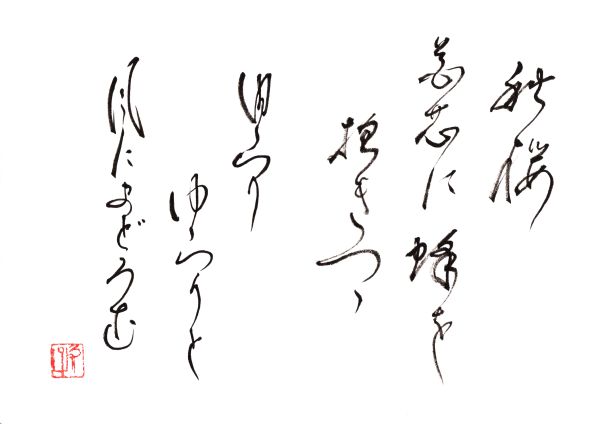 秋桜
花芯に蜂を
抱きつゝ
ゆらり
ゆらりと
風にまどろむ